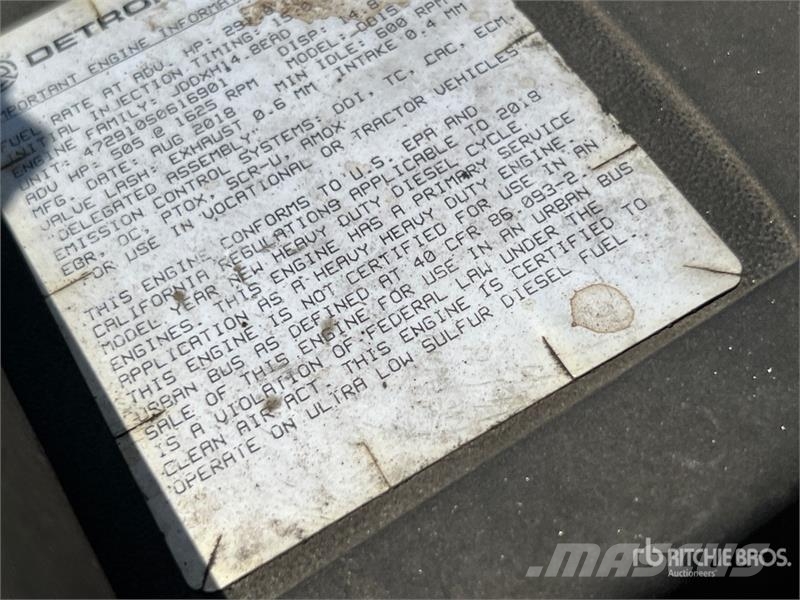 DETROI
IMPORTANT ENGINE INFORMAT
FUEL RATE AT ADV. HP:
INITIAL INJECTION TIMING:
ENGINE FAMILY: JDDXH14.8EAD DISP: 14.8
UNIT: 472910S0616901 MODEL: DD15
ADV HP: 505 @ 1625 RPM MIN IDLE: 600 RPM
MFG. DATE: AUG 2018
VALVE LASH: EXHAUST 0.6 MM INTAKE 0.4 MM
"DELEGATED ASSEMBLY"
EMISSION CONTROL SYSTEMS: DDI, TC, CAC, ECM,
EGR, OC, PTOX, SCR-U, AMOX
FOR USE IN VOCATIONAL OR TRACTOR VEHICLES
THIS ENGINE CONFORMS TO U.S. EPA AND
CALIFORNIA REGULATIONS APPLICABLE TO 2018
MODEL YEAR NEW HEAVY DUTY DIESEL CYCLE
ENGINES. THIS ENGINE HAS A PRIMARY SERVICE
APPLICATION AS A HEAVY HEAVY DUTY ENGINE.
THIS ENGINE IS NOT CERTIFIED FOR USE IN AN
URBAN BUS AS DEFINED AT 40 CFR 86.093-2.
SALE OF THIS ENGINE FOR USE IN AN URBAN BUS
IS A VIOLATION OF FEDERAL LAW UNDER THE
CLEAN AIR ACT. THIS ENGINE IS CERTIFIED TO
OPERATE ON ULTRA LOW SULFUR DIESEL FUEL.
MASCUS
rb RITCHIE BROS.
Auctioneers